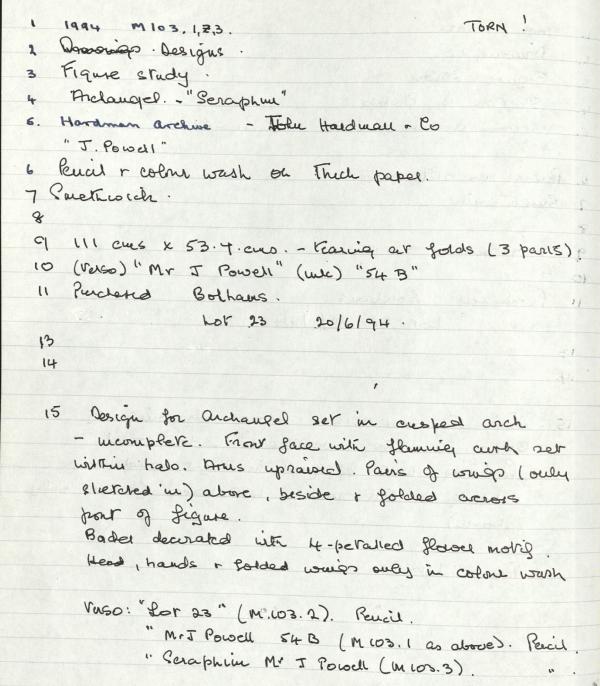 1 1994 M103.1,2,3. TORN !
2 Drawings. Designs.
3 Figure study.
4 Archangel. - "Seraphim"
5. Hardman Archive - John Hardman & Co
"J. Powell"
6 Pencil & colour wash on thick paper.
7 Smethwick.
8
9 111 cms x 53.7.cms. - tearing at folds (3 parts).
10 (Verso) "Mr J Powell" (ink) "54 B"
11 Purchased Bothams.
Lot 23 20/6/94.
13
14
15 Design for Archangel set in cusped arch
- incomplete. Front face with flaming curls set
within halo. Arms upraised. Pairs of wings (only
sketched in) above, beside & folded across
front of figure.
decorated with 4-petalled flower motif.
Head, hands & folded wings only in colour wash
Verso: "Lot 23" (M.103.2). Pencil.
" Mr J Powell 54 B (M103.1 as above). Pencil.
" Seraphim Mr J Powell (M103.3). "